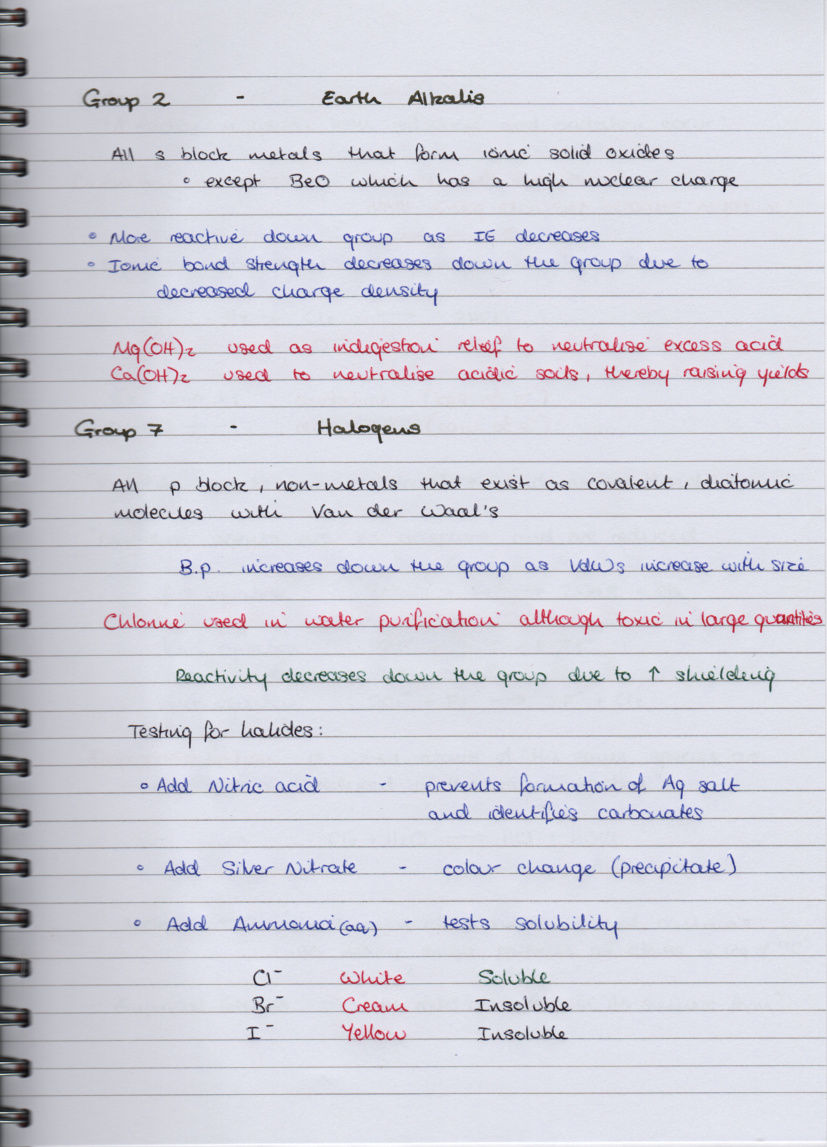 Group 2 - Earth Alkalis
All s block metals that form ionic solid oxides
◦ except BeO which has a high nuclear charge
◦ More reactive down group as IE decreases
◦ Ionic bond strength decreases down the group due to
decreased charge density
Mg(OH)₂ used as indigestion relief to neutralise excess acid
Ca(OH)₂ used to neutralise acidic soils, thereby raising yields
Group 7 - Halogens
All p block, non-metals that exist as covalent, diatomic
molecules with Van der Waal's
B.p. increases down the group as VdWs increase with size
Chlorine used in water purification although toxic in large quantities
Reactivity decreases down the group due to ↑ shielding
Testing for halides:
◦ Add Nitric acid - prevents formation of Ag salt
and identifies carbonates
◦ Add Silver Nitrate - colour change (precipitate)
◦ Add Ammonia (aq) - tests solubility
Cl⁻ White Soluble
Br⁻ Cream Insoluble
I⁻ Yellow Insoluble